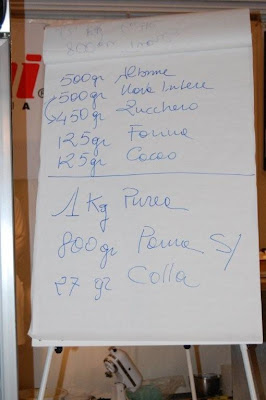 500gr Albume
500gr Uova Intere
450gr Zucchero
125gr Farina
125gr Cacao
1 Kg Purea
800gr Panna S/
27 gr Colla